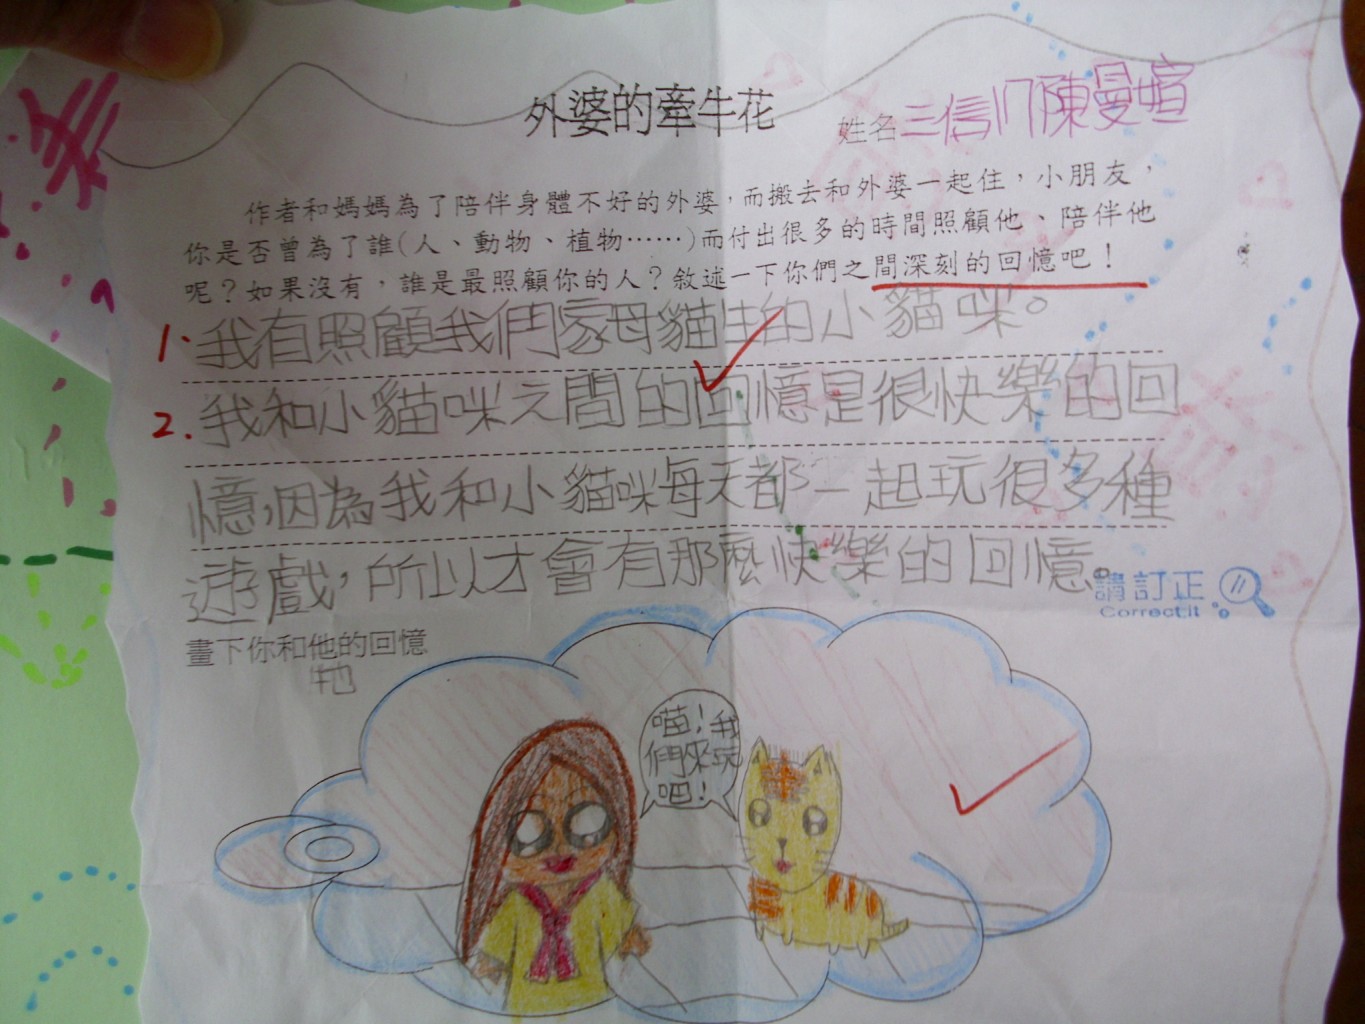 外婆的牽牛花
姓名 三信17陳曼媗
作者和媽媽為了陪伴身體不好的外婆，而搬去和外婆一起住，小朋友，
你是否曾為了誰(人、動物、植物……)而付出很多的時間照顧他、陪伴他
呢？如果沒有，誰是最照顧你的人？敘述一下你們之間深刻的回憶吧！
1. 我有照顧我們家母貓生的小貓咪。
2. 我和小貓咪之間的回憶是很快樂的回
憶，因為我和小貓咪每天都一起玩很多種
遊戲，所以才會有那麼快樂的回憶。
請訂正
Correct it
畫下你和他的回憶
牠
喵！我
們來玩
吧！